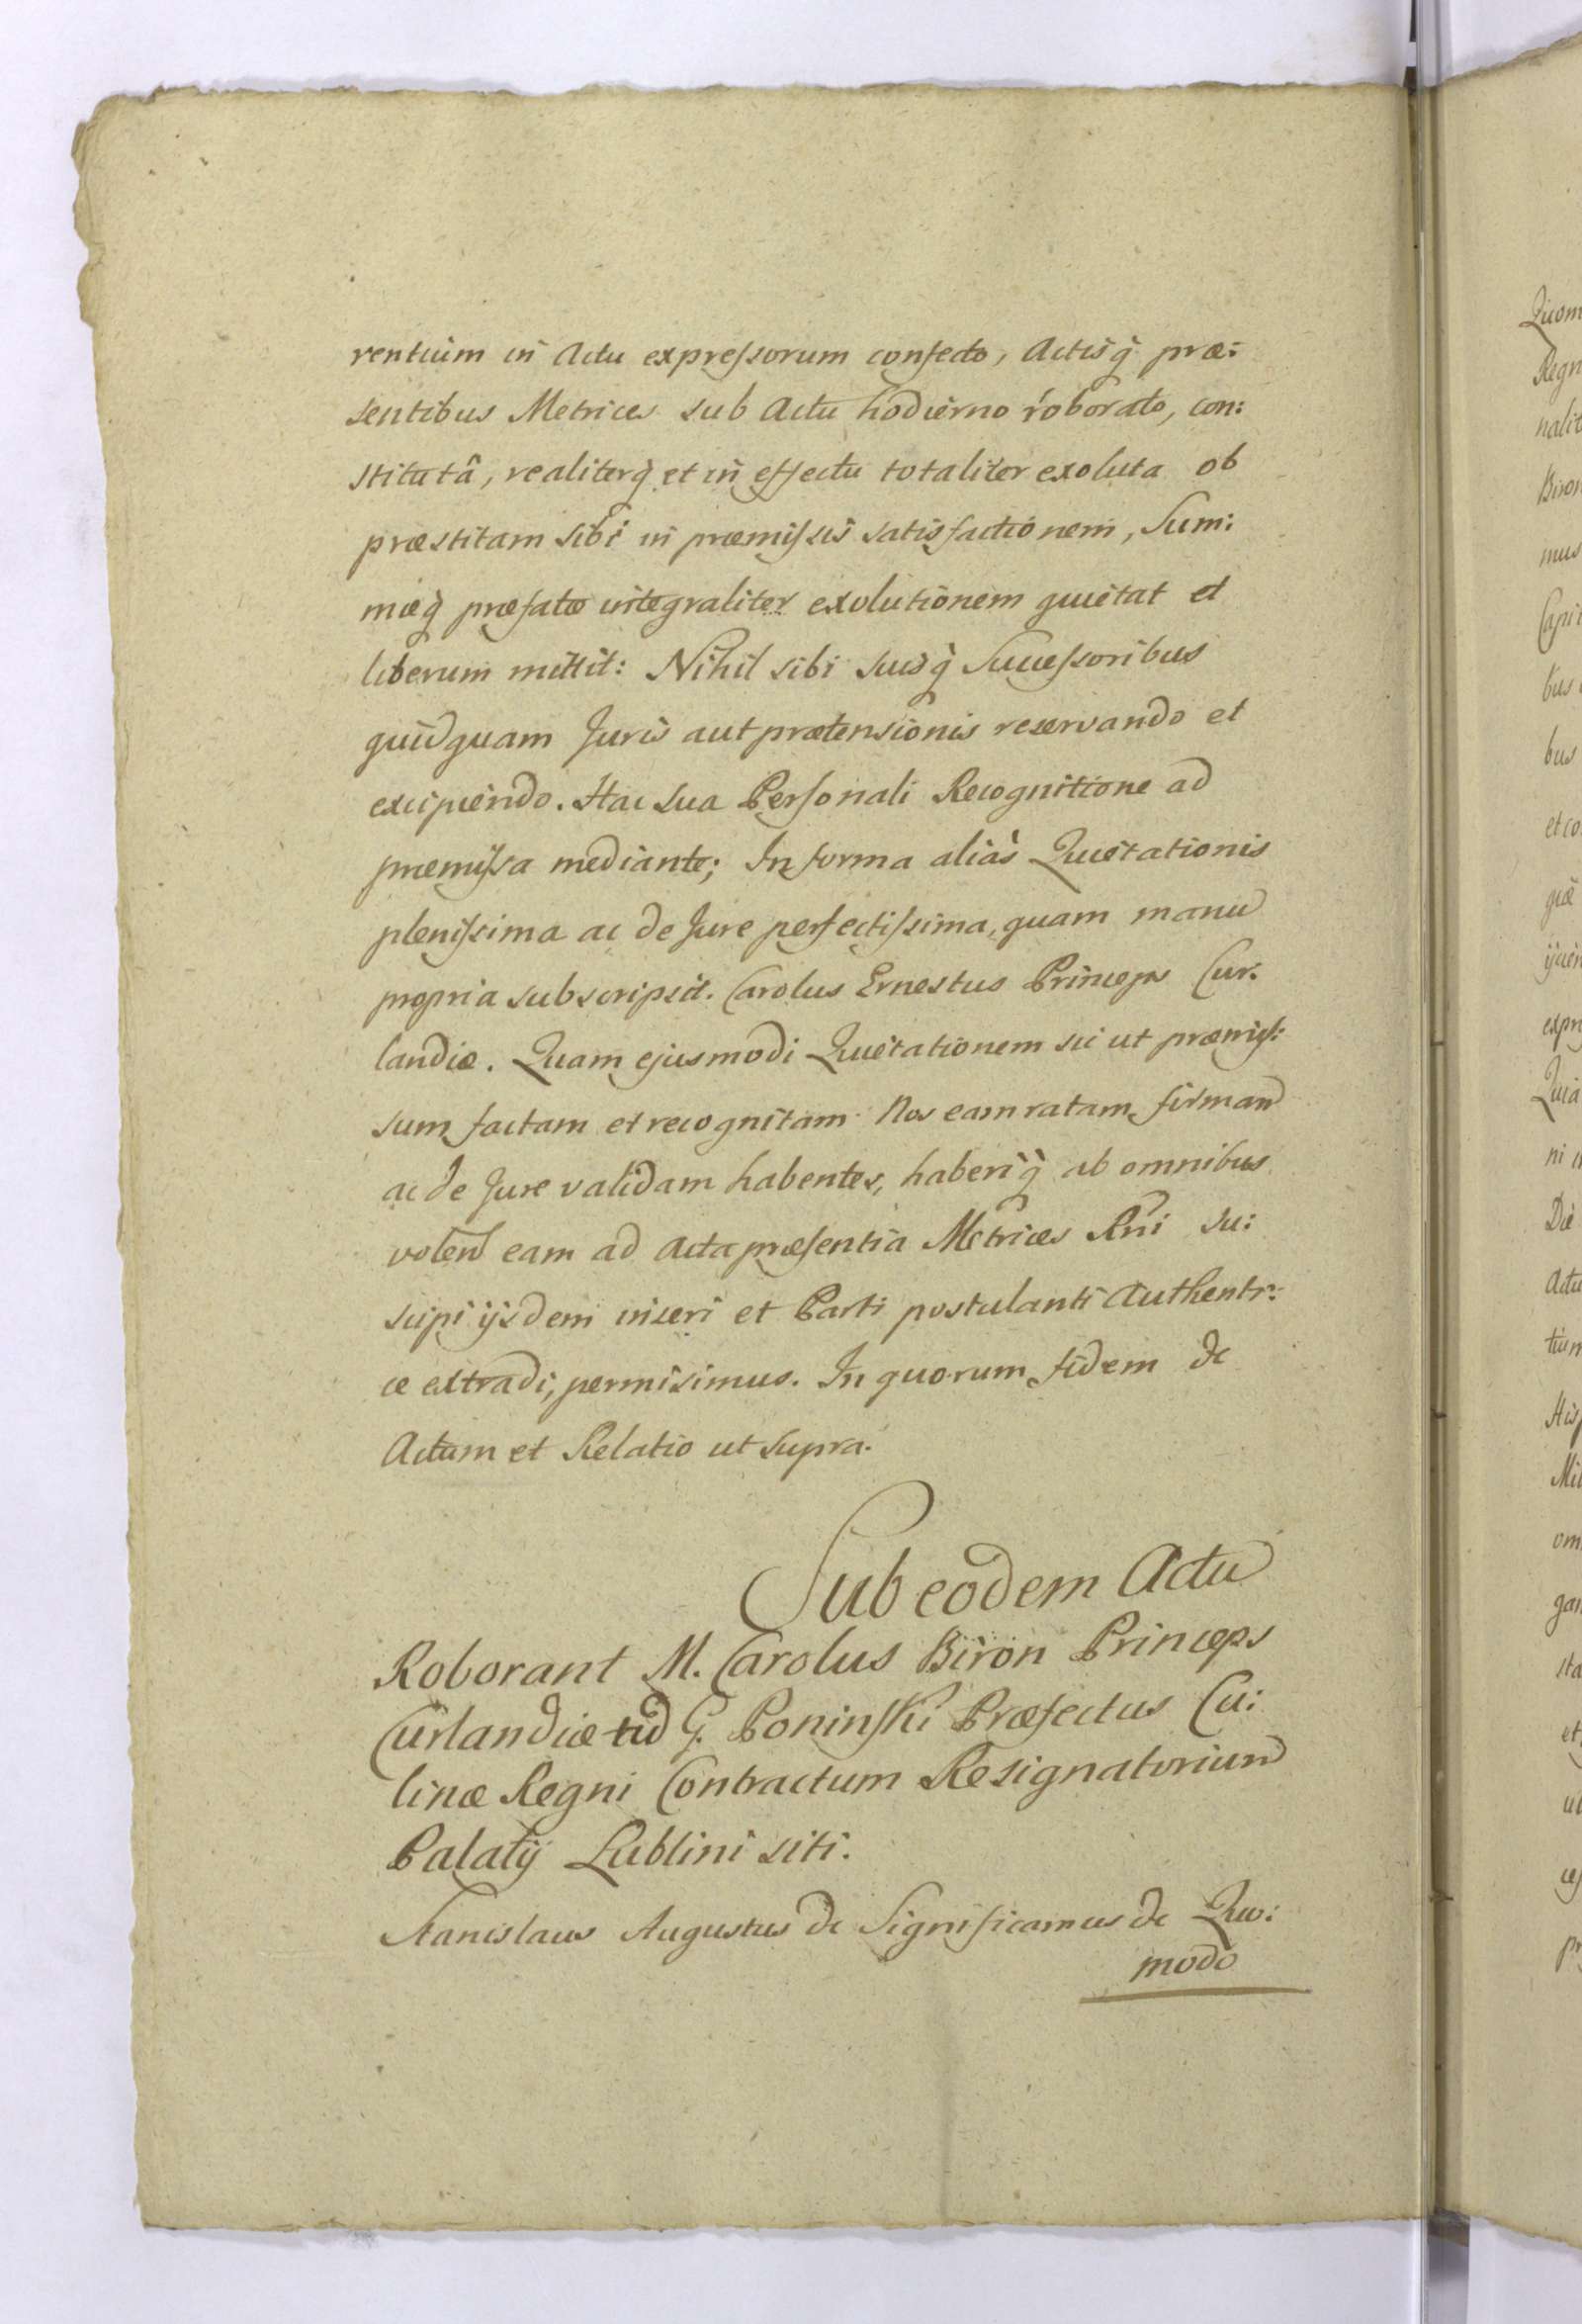 rentium in Actu expressorum confecto, Actisq̀ præ:
sentibus Metrices sub Actu hodierno roborato, con:
stitutâ, realiterq̀ et in effectu totaliter exoluta ob
præstitam sibi in præmissis satisfactionem, Sum:
mæq̀ præfatæ integraliter exolutionem quietat et
liberum mittit: Nihil sibi suisq̀ Successoribus
quidquam Juris aut prætensionis reservando et
excipiendo. Hac sua Personali Recognitione ad
præmissa mediante; In forma aliàs Quietationis
plenissima ac de Jure perfectissima, quam manu
propria subscripsit. Carolus Ernestus Princeps Cur:
landiæ. Quam ejusmodi Quietationem sic ut præmis:
sum factam et recognitam Nos eam ratam firmam
ac de Jure validam habentes, haberiq̀ ab omnibus
volen eam ad Acta præsentia Metrices Rni su:
scipi ijsdem inseri et Parti postulanti Authenti:
ce extradi, permisimus. In quorum fidem &c
Actum et Relatio ut supra.
Sub eodem Actu
Roborant M. Carolus Biron Princeps
Curlandiæ G. Poninski Præfectus Cu:
linæ Regni Contractum Resignatorium
Palatij Lublini siti.
Stanislaus Augustus &c Significamus &c Quo:
modo
Quom
Regn
nalit
Biron
mus
Capi
bus
bus
et co
giæ
expr
Quia
ni
Die
Actu
tium
His
om
gan
sta
et